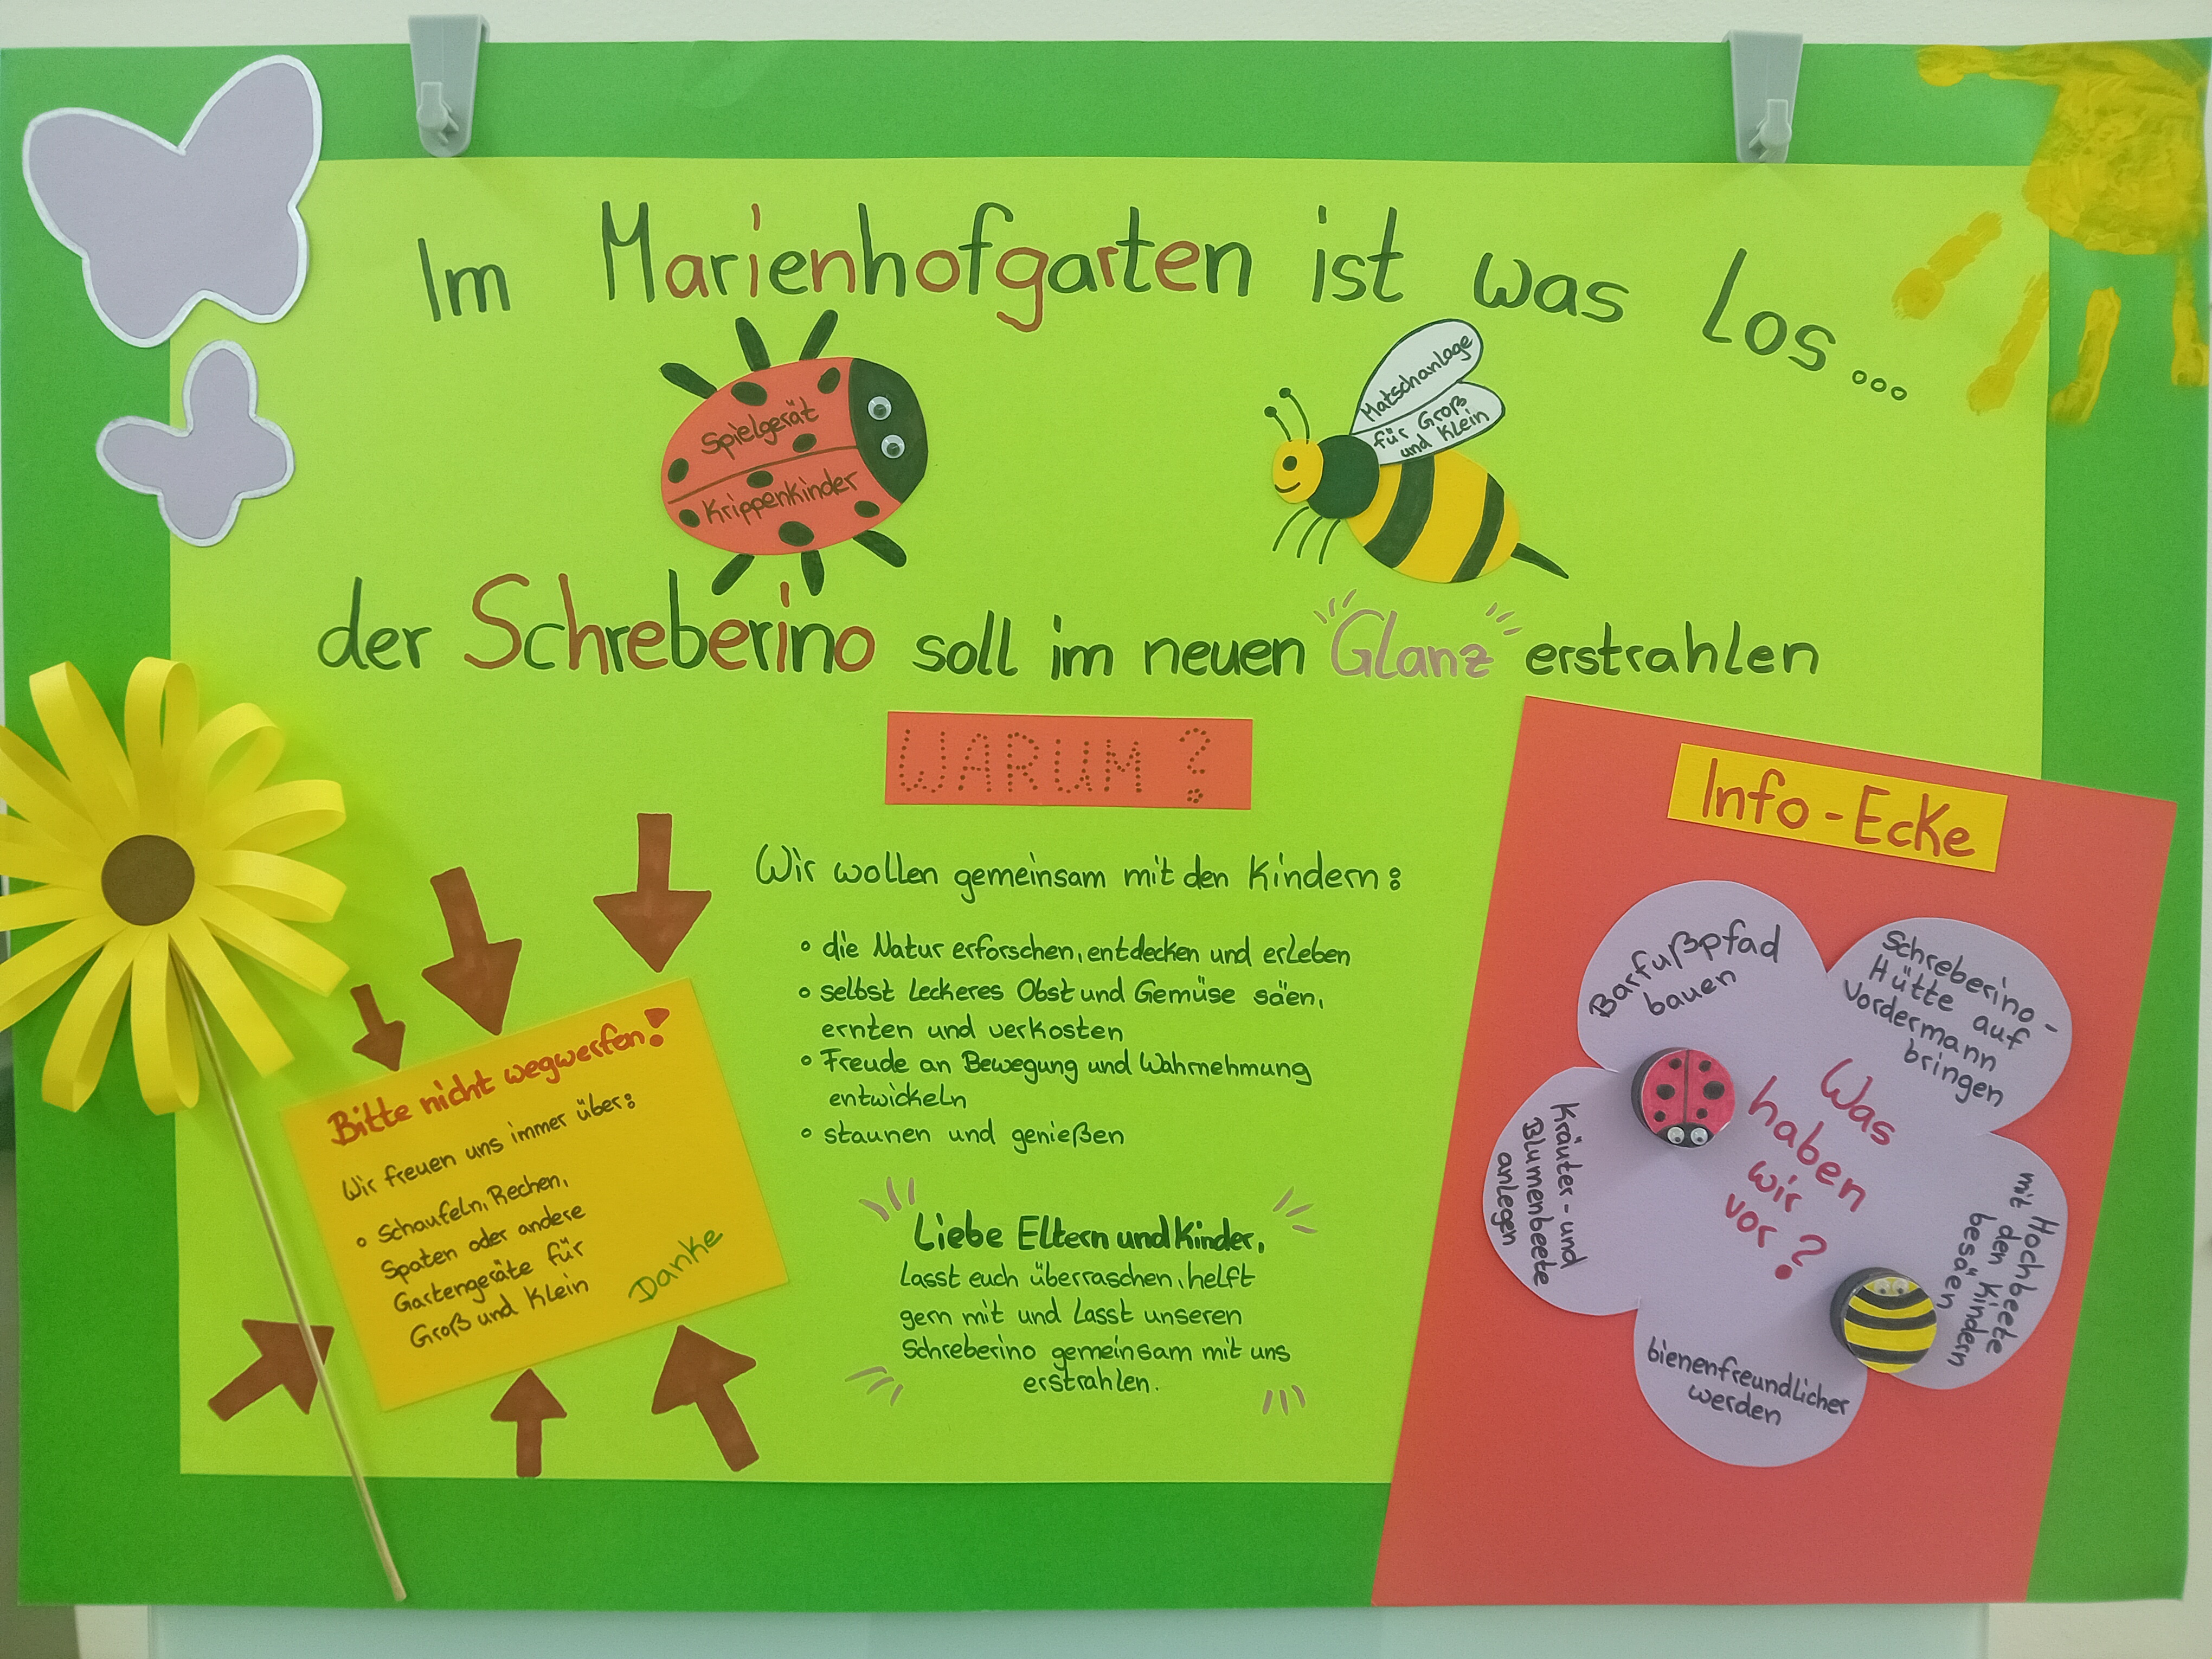 Im Marienhofgarten ist was los...
Spielgerät
Krippenkinder
Matschanlage
für Groß
und Klein
der Schreberino soll im neuen "Glanz" erstrahlen
WARUM ?
Wir wollen gemeinsam mit den Kindern:
• die Natur erforschen, entdecken und erleben
• selbst leckeres Obst und Gemüse säen,
ernten und verkosten
• Freude an Bewegung und Wahrnehmung
entwickeln
• staunen und genießen
Liebe Eltern und Kinder,
Lasst euch überraschen, helft
gern mit und lasst unseren
Schreberino gemeinsam mit uns
erstrahlen.
Bitte nicht wegwerfen!
Wir freuen uns immer über:
• Schaufeln, Rechen,
Spaten oder andere
Gartengeräte für
Groß und Klein
Danke
Info-Ecke
Barfußpfad
bauen
Schreberino-
Hütte auf
Vordermann
bringen
Kräuter- und
Blumenbeete
anlegen
Was
haben
wir
vor?
Hochbeete
mit den Kindern
besäen
bienenfreundlicher
werden